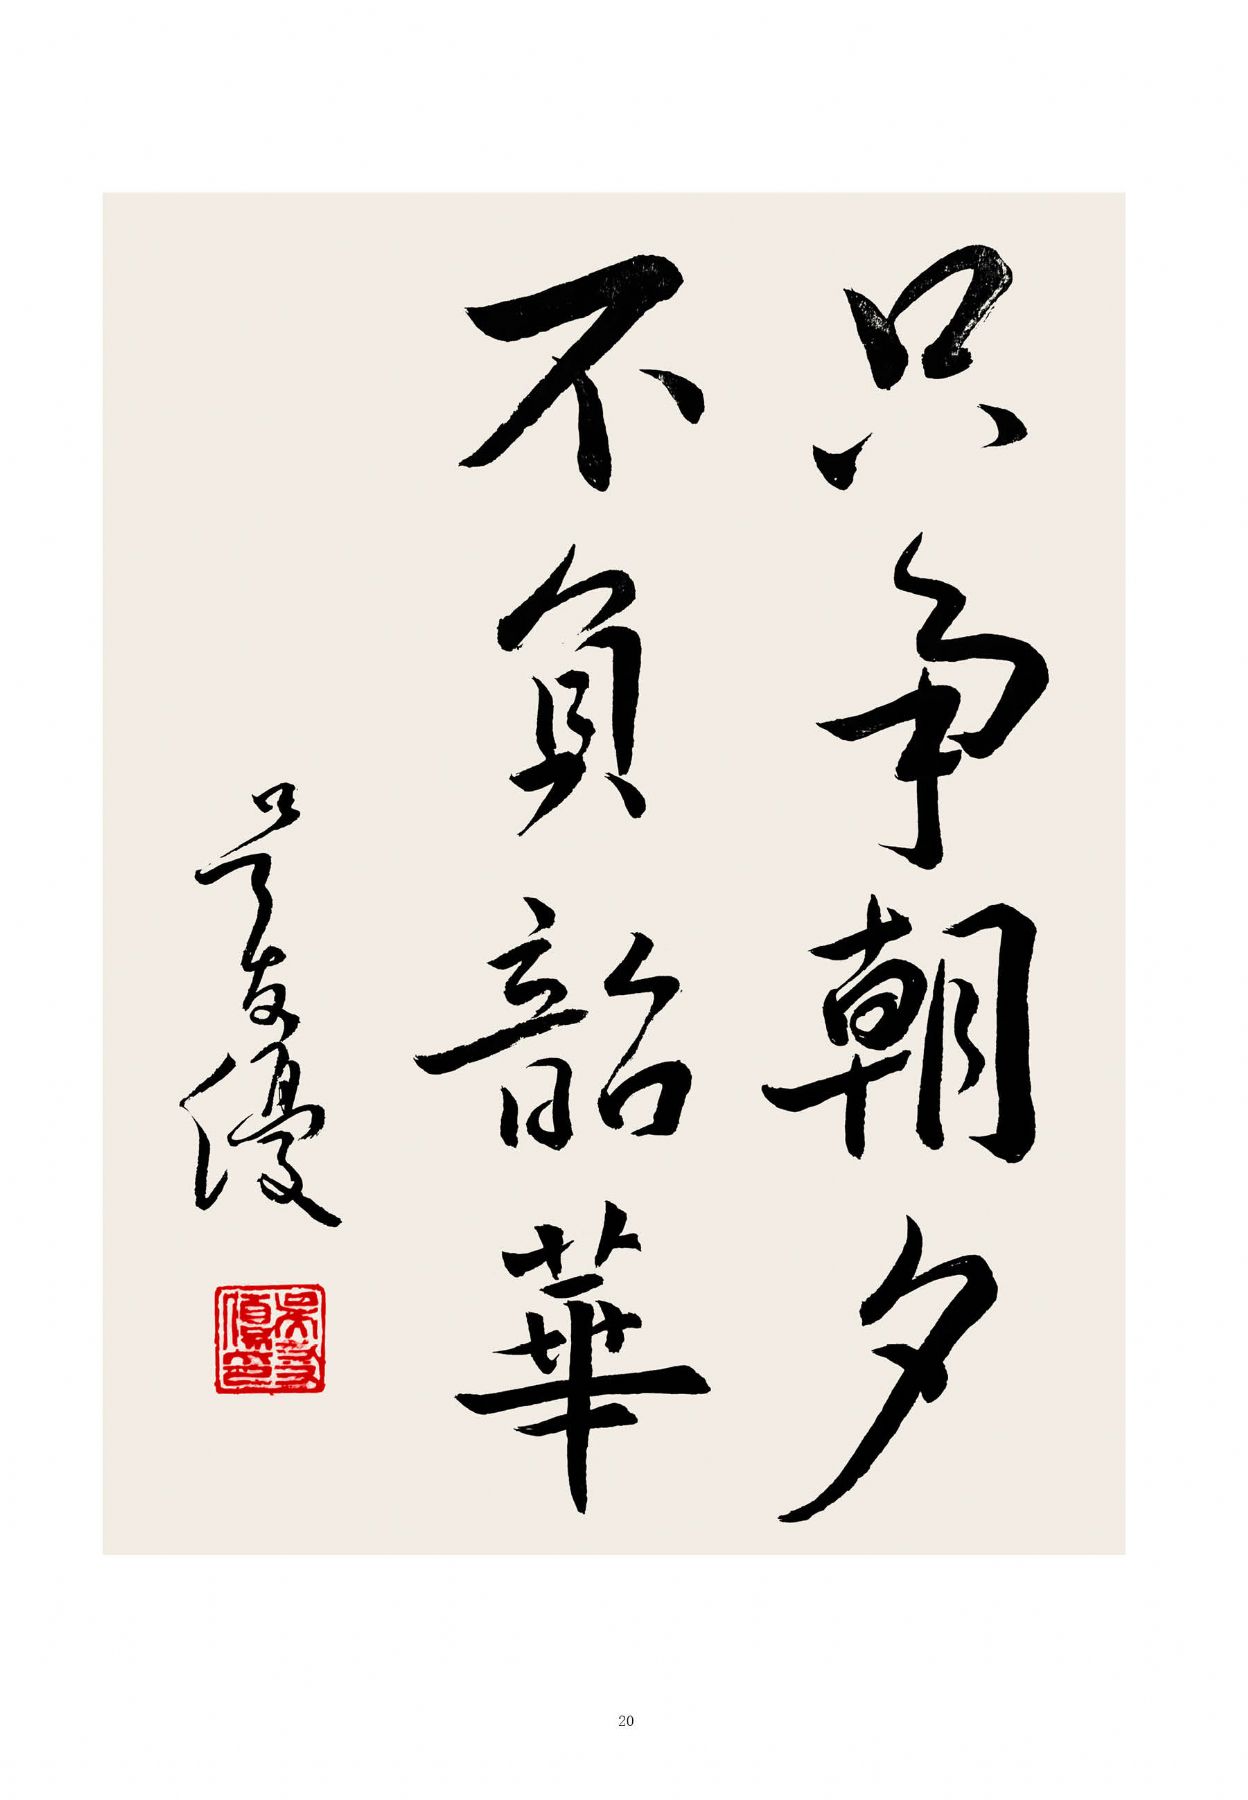 只争朝夕
不負韶華
吴友優
吴友優印
20